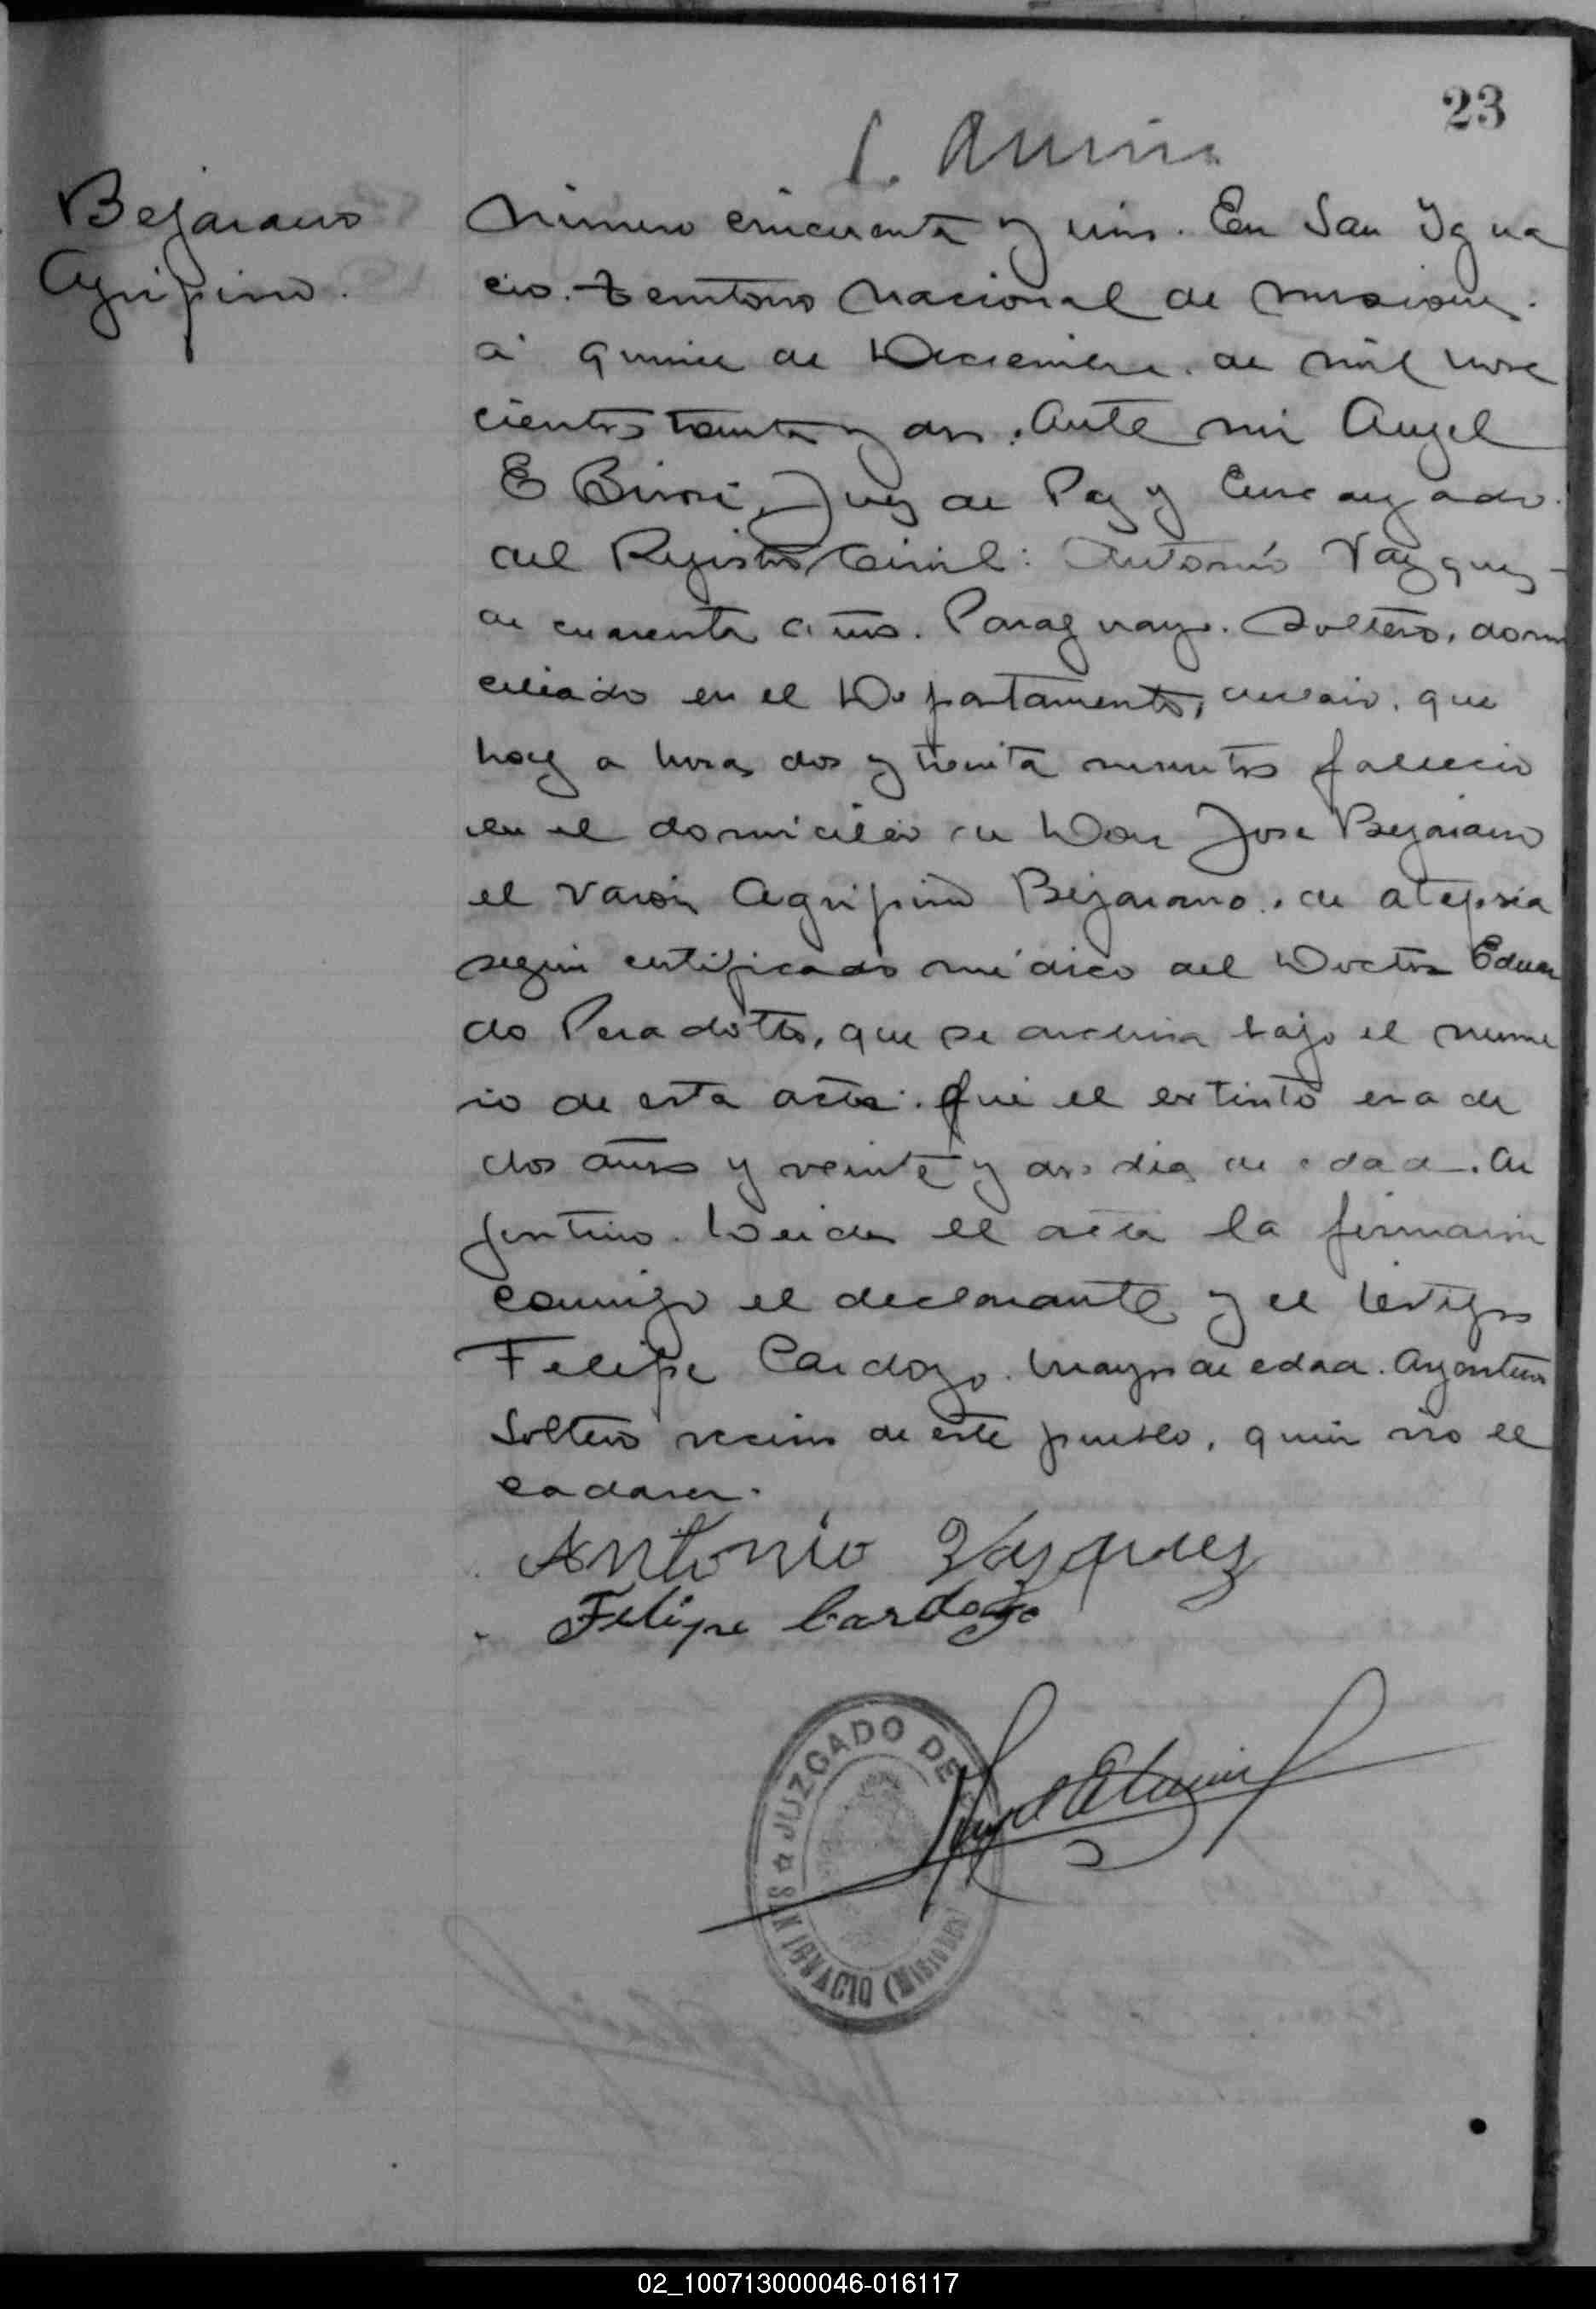 23
Bejarano
Agripino.
Número cincuenta y uno. En San Igna
cio. Territorio Nacional de Misiones.
a quince de Diciembre. de mil nove
cientos treinta y dos. Ante mi Angel
E Juez de Paz y Encargado.
del Registro Civil: Antonio Vazquez
de cuarenta años. Paraguayo. Soltero, domi
ciliado en el Departamento, declaró, que
hoy a horas dos y treinta minutos falleció
en el domicilio de Don Jose Bejarano
el varón Agripino Bejarano. de atepsia
según certificado médico del Doctor Eduar
do Peradotto, que se archiva bajo el nume
ro de esta acta. Que el extinto era de
dos años y veinte y dos dias de edad. Ar
gentino. Leida el acta la firmaron
conmigo el declarante y el testigo
Felipe Cardozo. Mayor de edad. Argentino
Soltero vecino de este pueblo, quien vio el
cadaver.
Antonio Vazquez
Felipe Cardozo
JUZGADO DE
SAN IGNACIO (MISIONES)
02_100713000046-016117